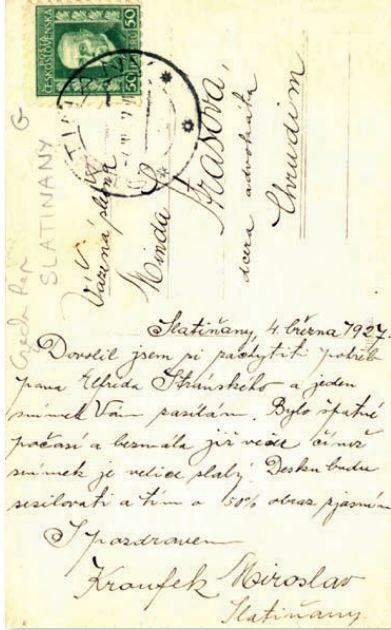 50
POŠTA
ČESKOSLOVENSKÁ
50 50
SLATINANY G
Vážená slečna
Minda Strasová,
dcera advokáta
Chrudim
Slatiňany, 4. března 1927.
Dovolil jsem si zachytiti pohřeb
pana Elfrida Stránského a jeden
snímek Vám zasílám. Bylo špatné
počasí a bezmála již večer čímž
snímek je velice slabý. Desku budu
sesilovati a tím o 50% obraz zjasním
S pozdravem
Kroufek Miroslav
Slatiňany.